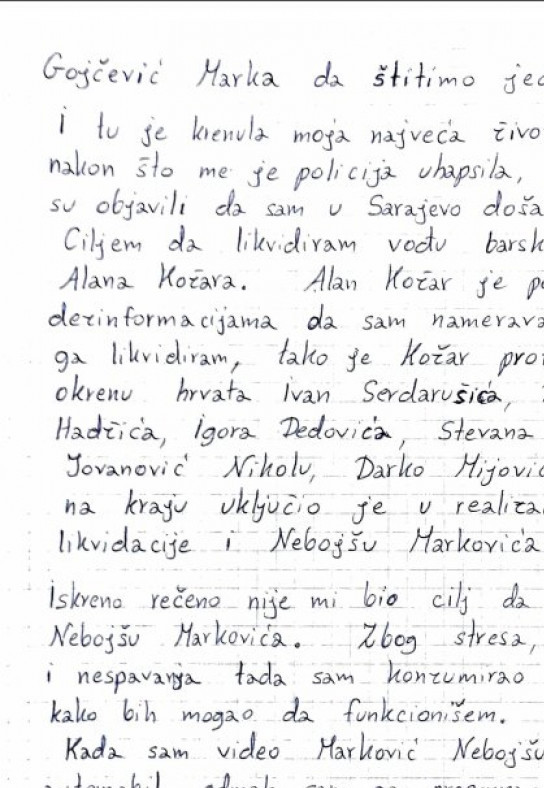 Gojčević Marka da štitimo jed
i tu je krenula moja najveća živo
nakon što me je policija uhapsila,
su objavili da sam u Sarajevo doša
Ciljem da likvidiram vođu barsk
Alana Kožara. Alan Kožar je po
dezinformacijama da sam namerava
ga likvidiram, tako je Kožar pro
okrenu hrvata Ivan Serdarušića,
Hadžića, Igora Dedovića, Stevana
Jovanović Nikolu, Darko Mijović
na kraju uključio je u realiza
likvidacije i Nebojšu Markovića
Iskreno rečeno nije mi bio cilj da
Nebojšu Markovića. Zbog stresa,
i nespavanja tada sam konzumirao
kako bih mogao da funkcionišem.
Kada sam video Marković Nebojšu